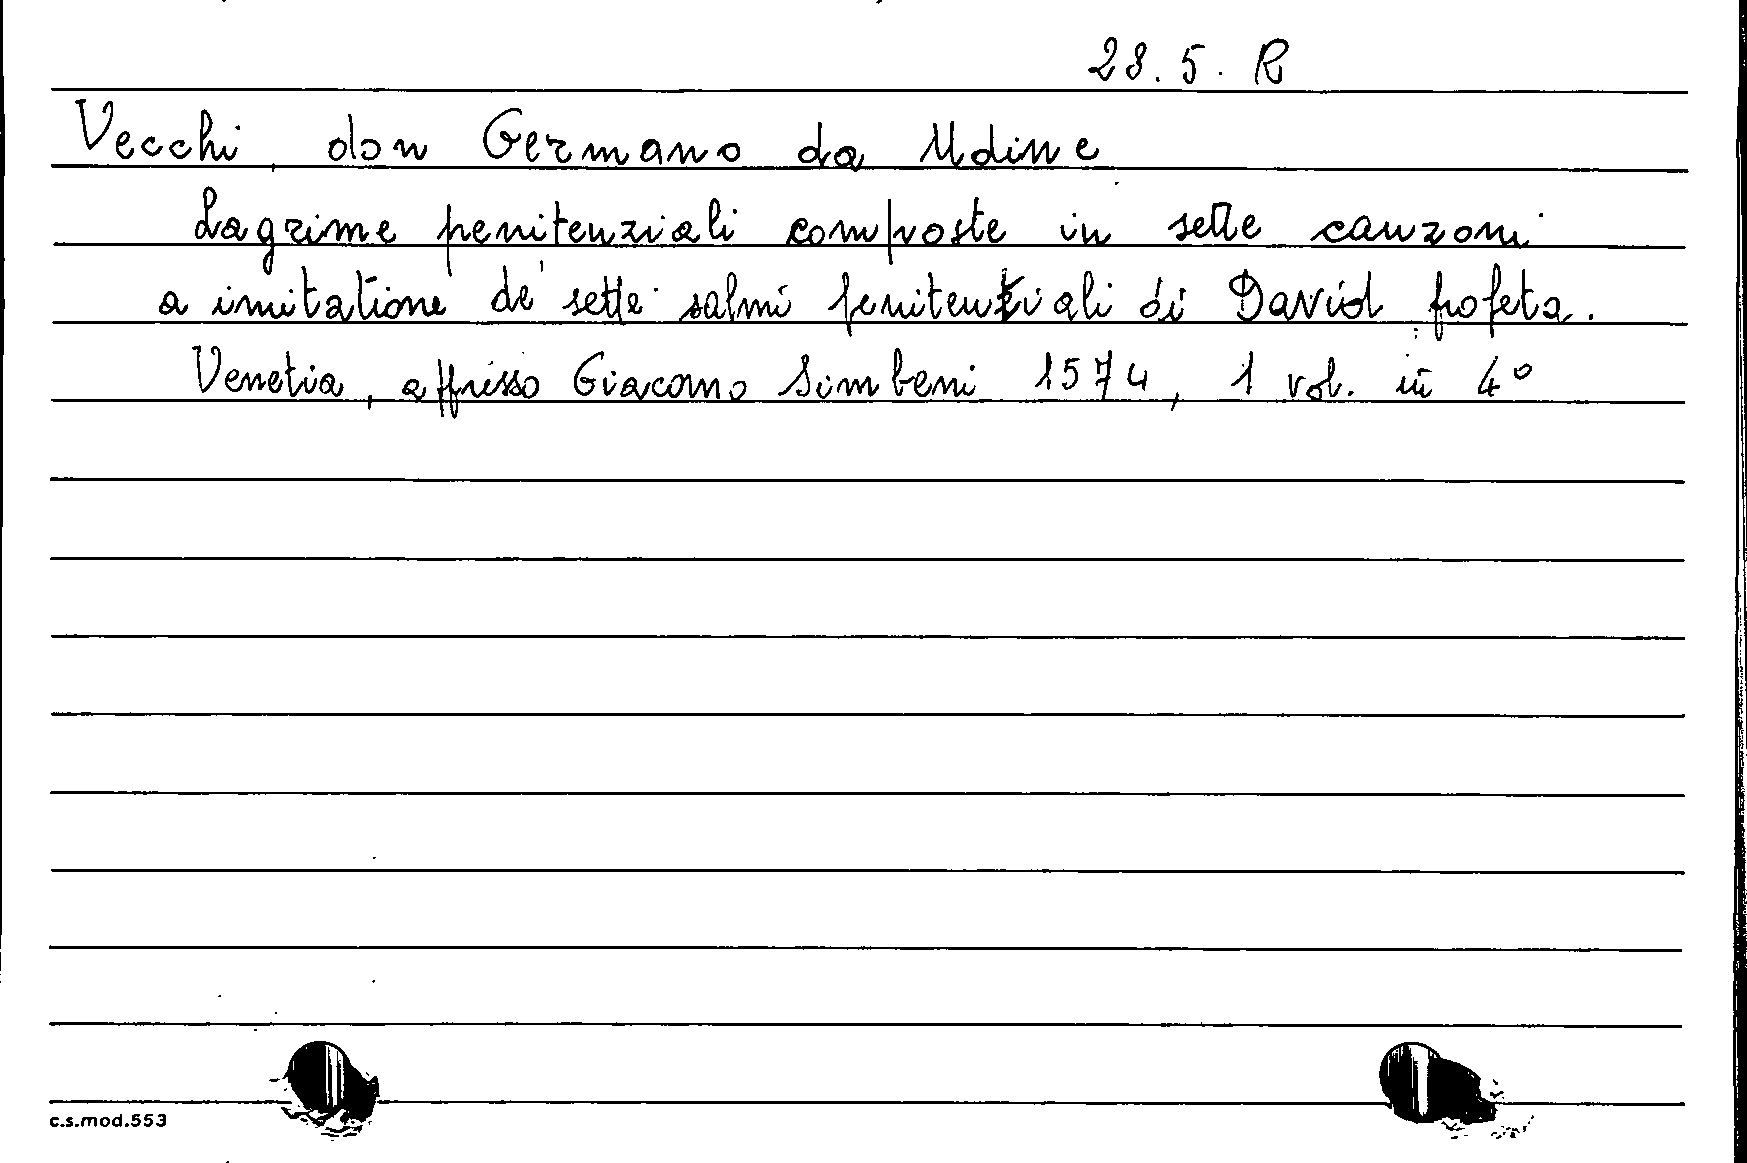 28. 5. R
Vecchi, don Germano da Udine
Lagrime penitenziali composte in sette canzoni
a imitatione de' sette salmi penitentiali di David profeta.
Venetia, appresso Giacomo Simbeni 1574, 1 vol. in 4°
c.s.mod.553